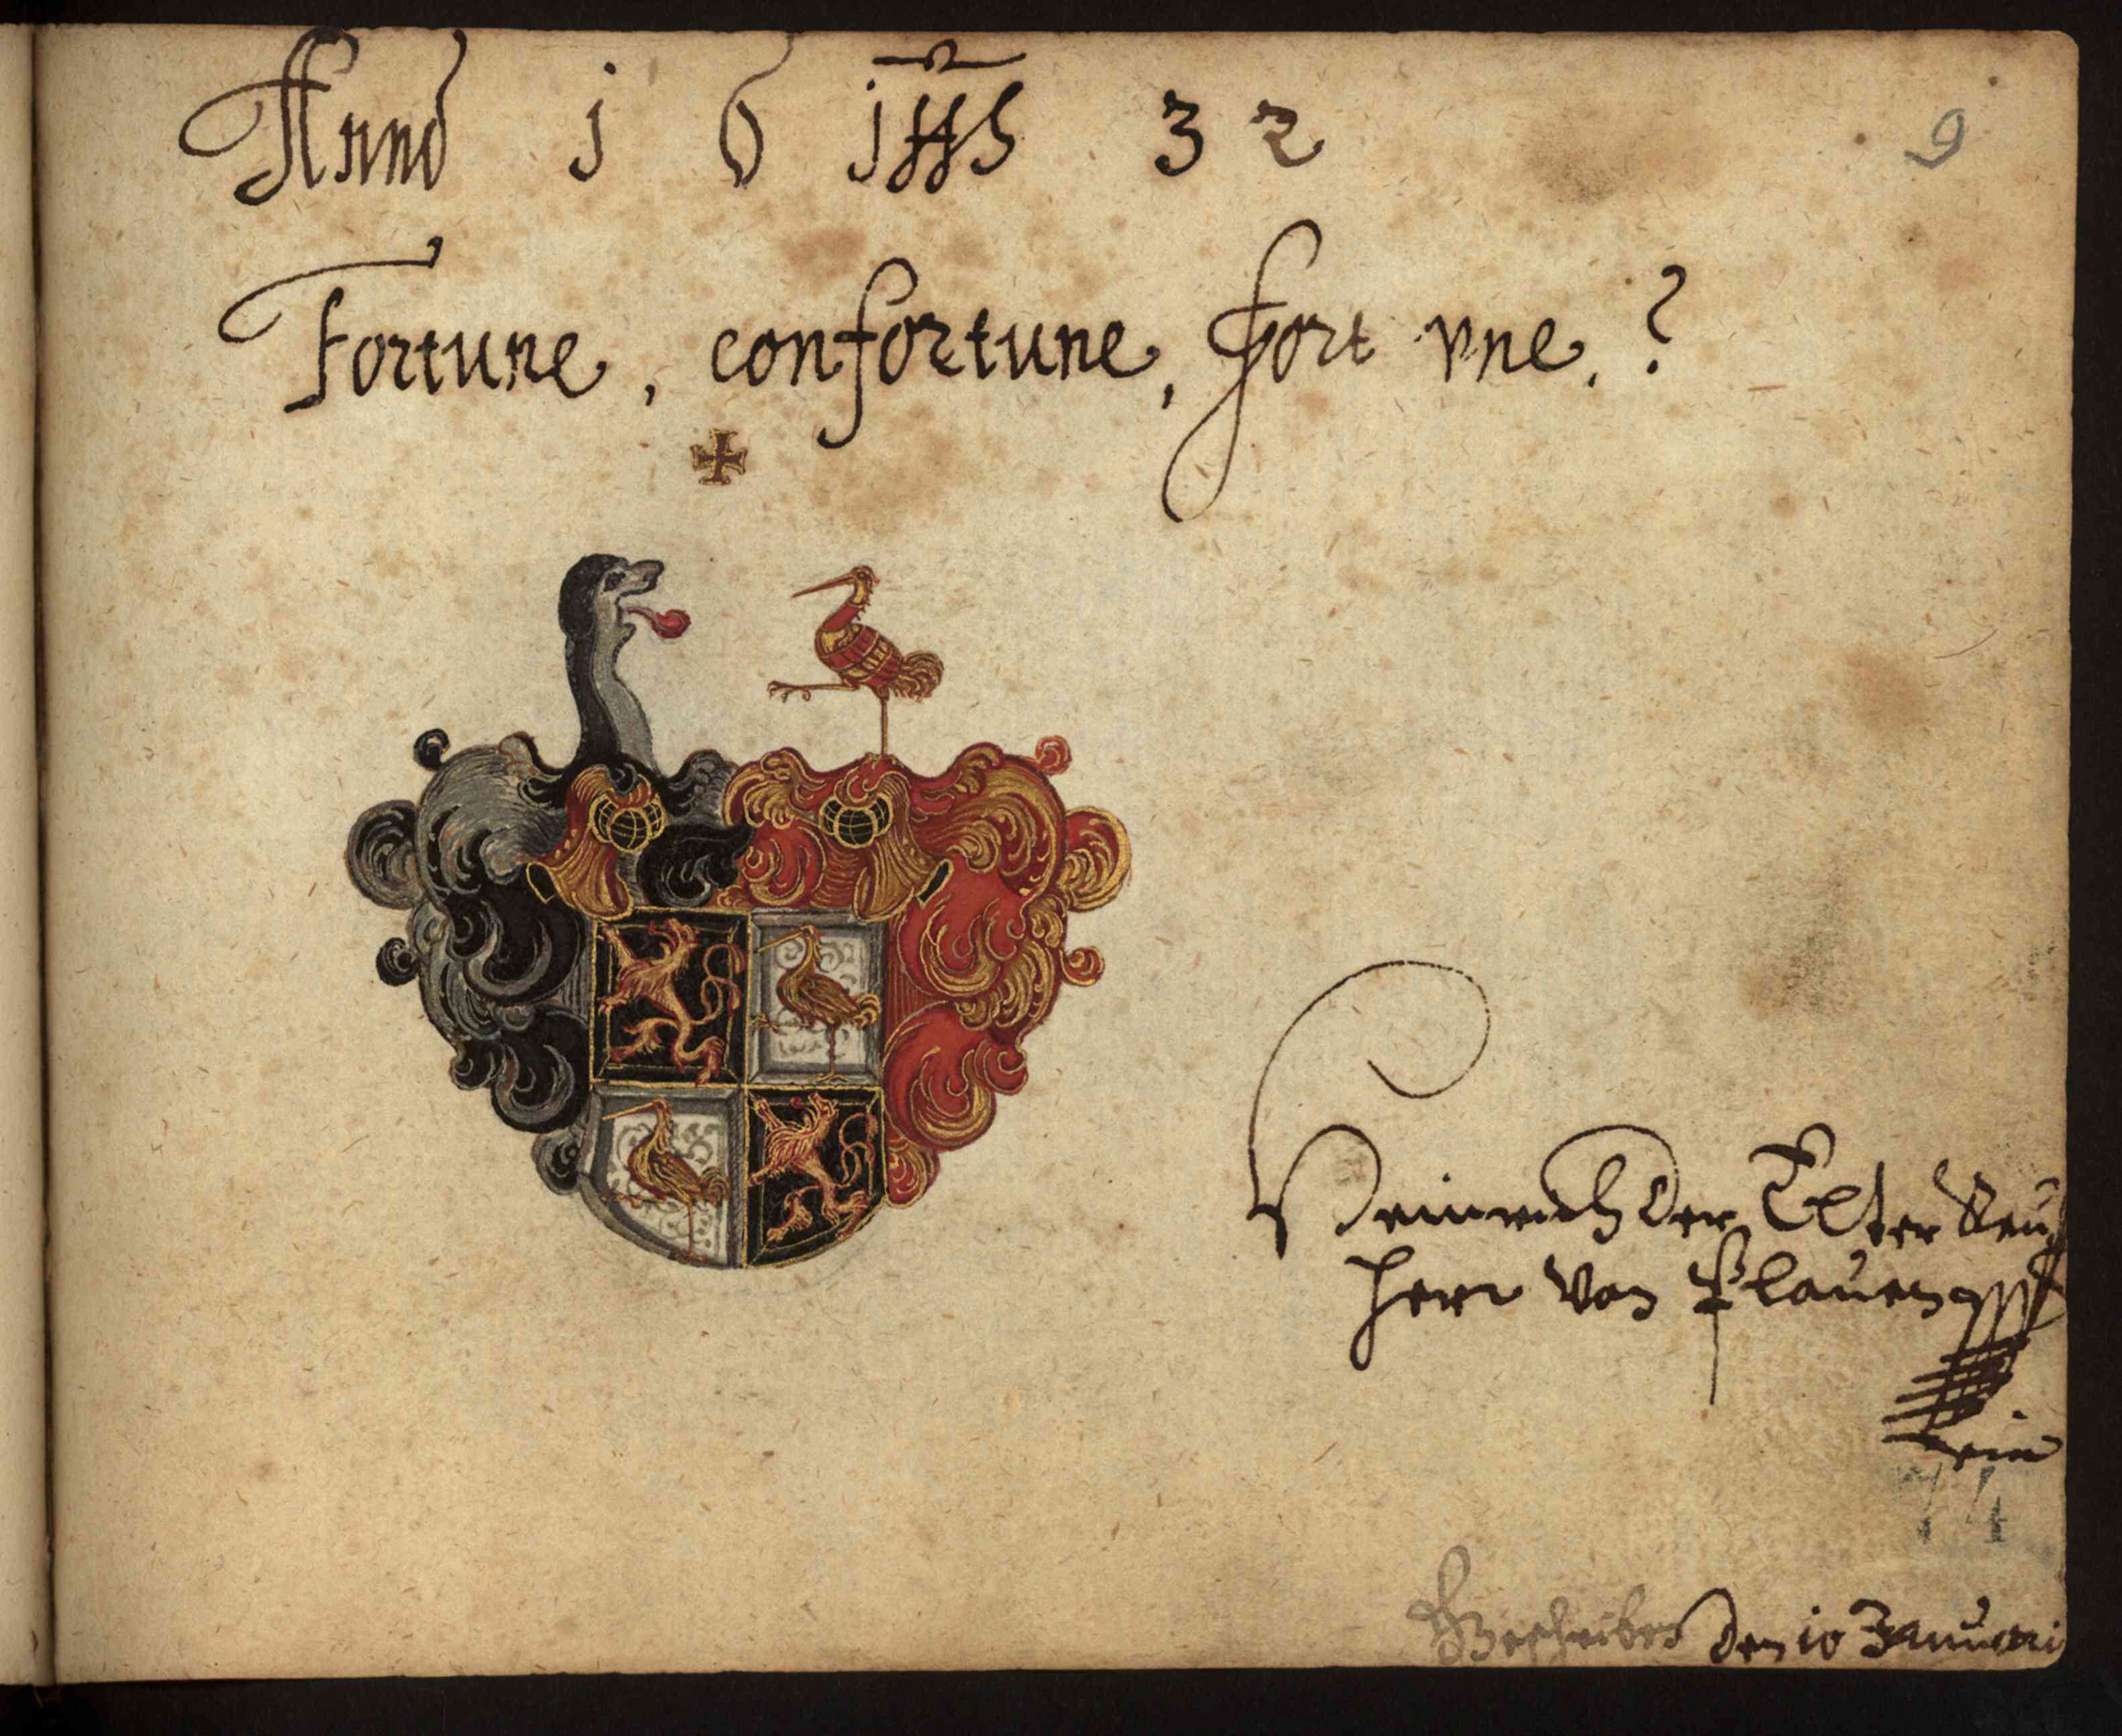 Anno 1 6 JHS 3 2
9
Fortune, confortune, fort vne.?
Heinrich Der Elter Reuß
Herr Von Plauen
74
Geschrieben Den 10 Januari